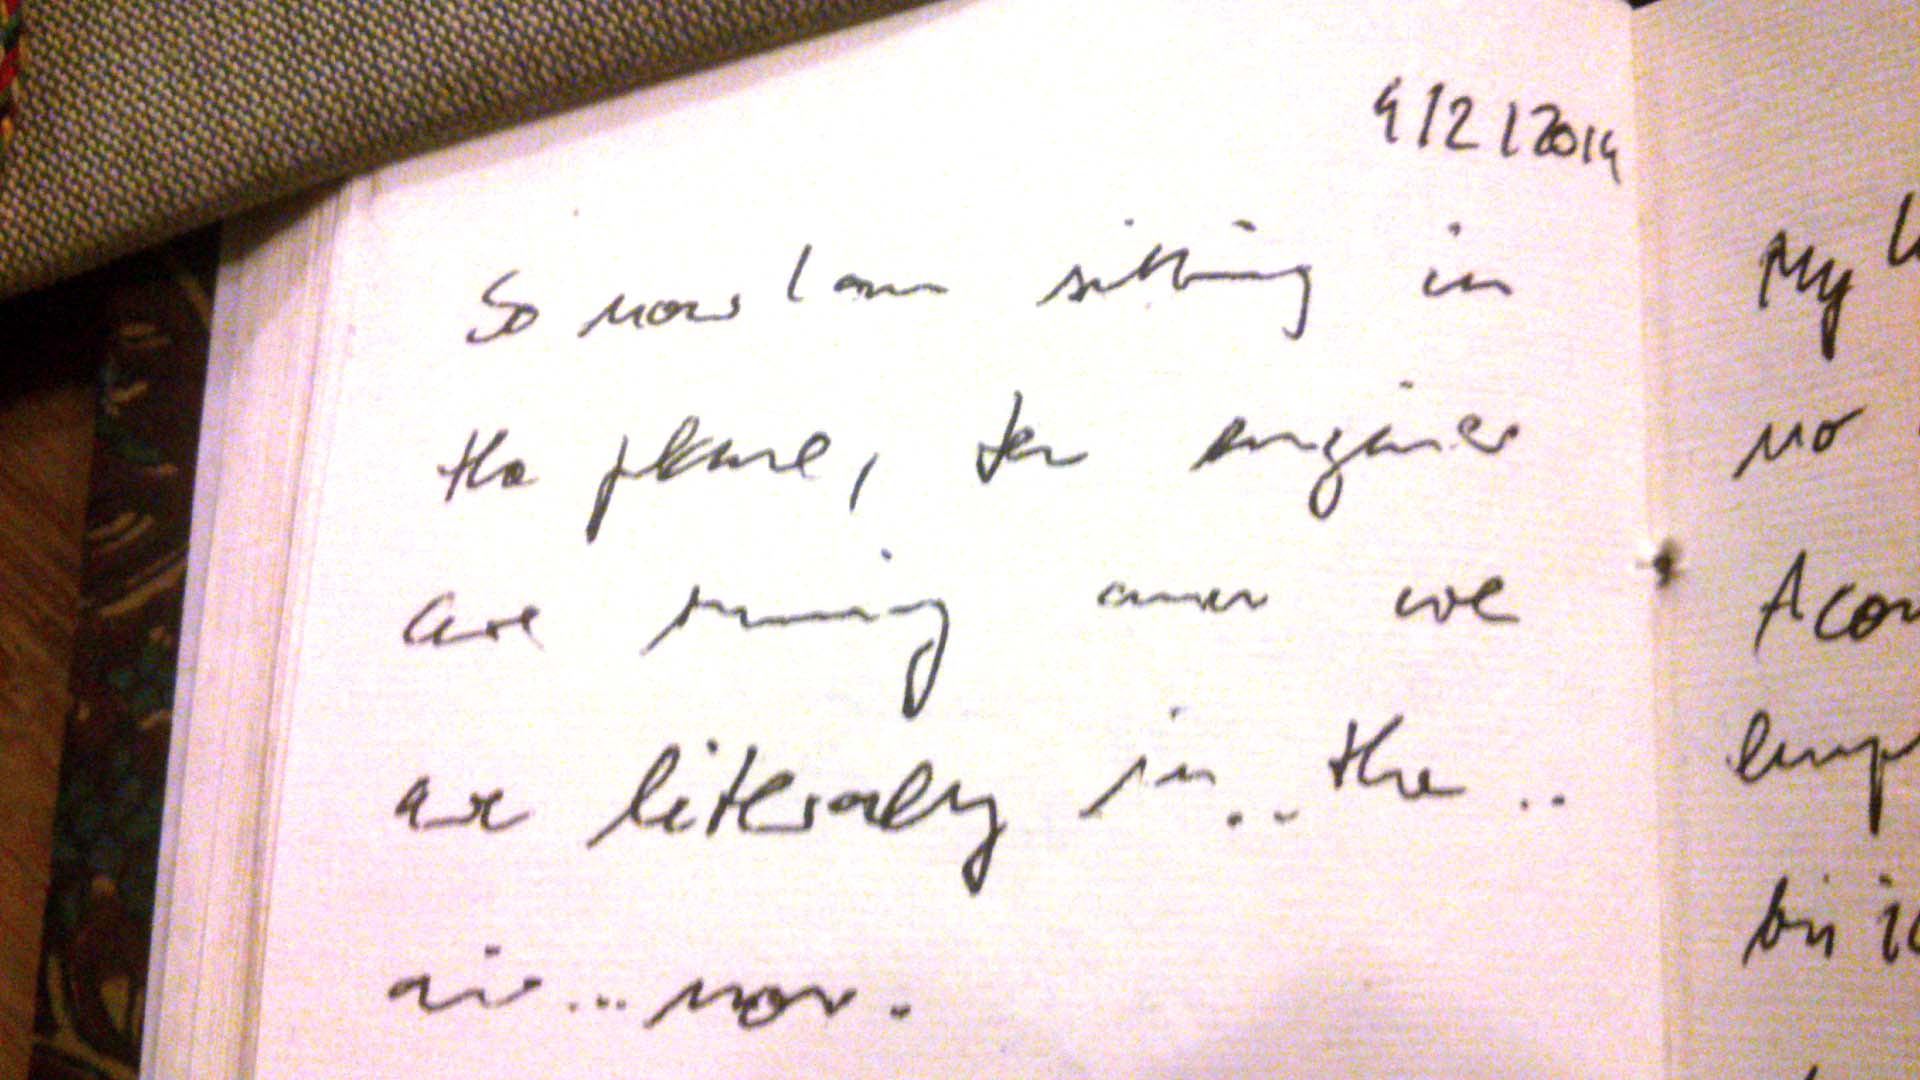 9/2/2014
So now I am sitting in
the plane, the engines
are running and we
are literally in.. the ..
air... now.
My
no